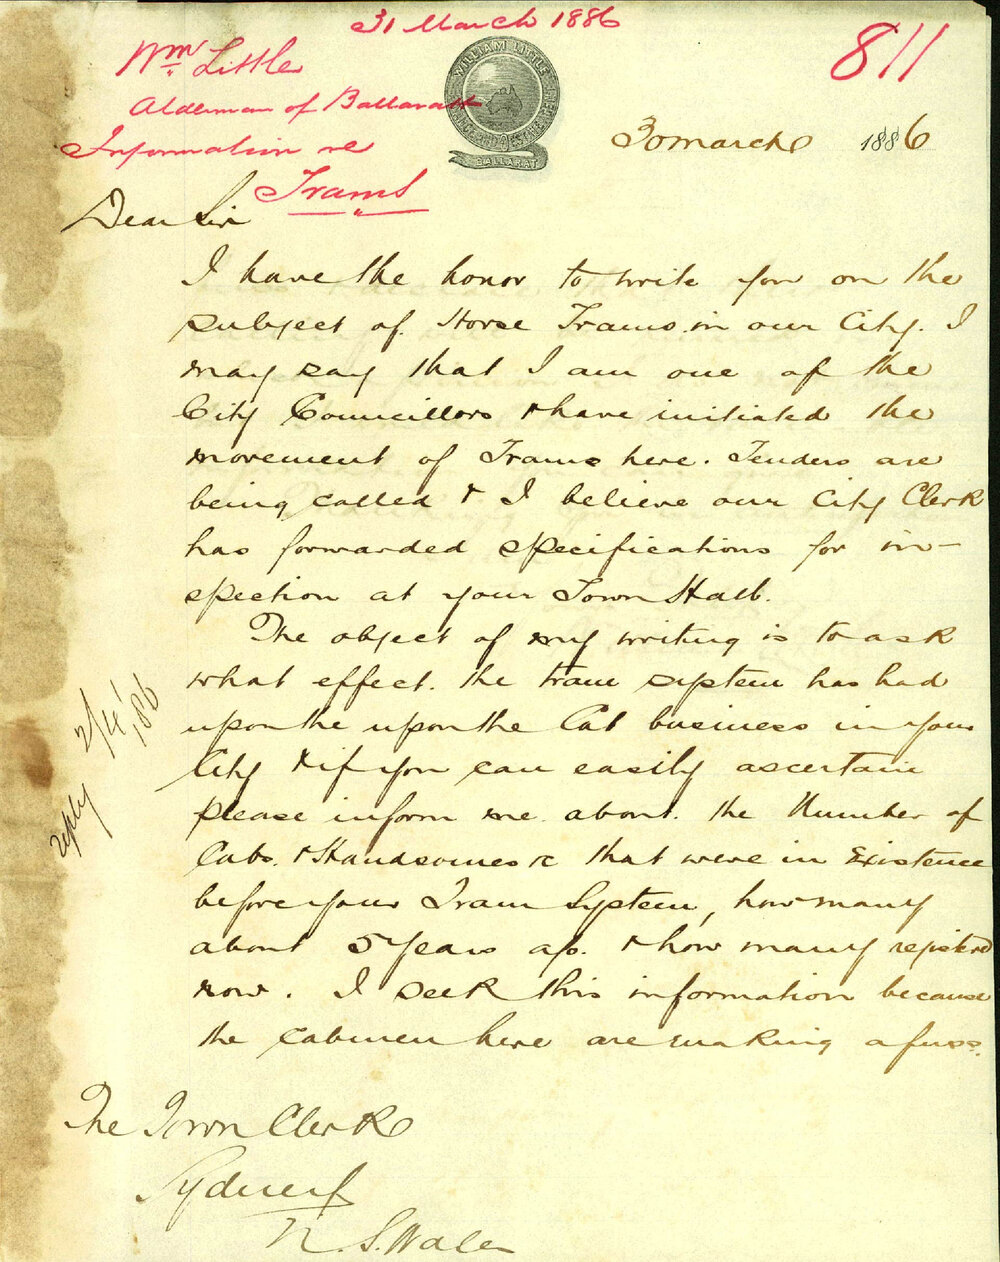 31 March 1886
811
Wm. Little
Alderman of Ballarat
Information re
Trams
WILLIAM LITTLE
BALLARAT
30 March 1886
Dear Sir
I have the honor to write you on the
subject of Horse Trams in our City. I
may say that I am one of the
City Councillors & have initiated the
movement of Trams here. Tenders are
being called & I believe our City Clerk
has forwarded specifications for in-
spection at your Town Hall.
The object of my writing is to ask
what effect. the tram system has had
upon the upon the Cab business in your
City & if you can easily ascertain
please inform me about. the Number of
Cabs. & Handsomes &c that were in Existence
before your Tram System, how many
about 5 years ago. & how many registered
now. I seek this information because
the cabmen here are making a fuss.
reply 2/4/86
The Town Clerk
Sydney
N. S. Wales